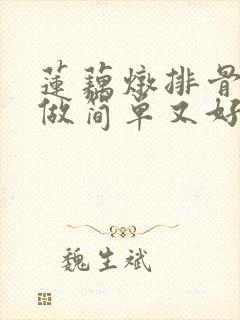 蓮藕燉排骨
做简单又好
魏生斌